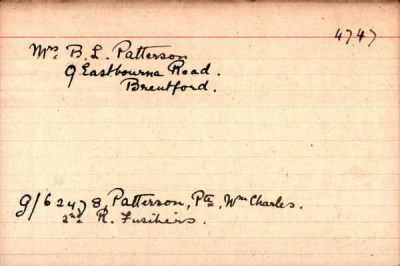 4747
Mrs B. L. Patterson
9 Eastbourne Road.
Brentford.
G/62478, Patterson, Pte, Wm Charles.
2nd R. Fusiliers.